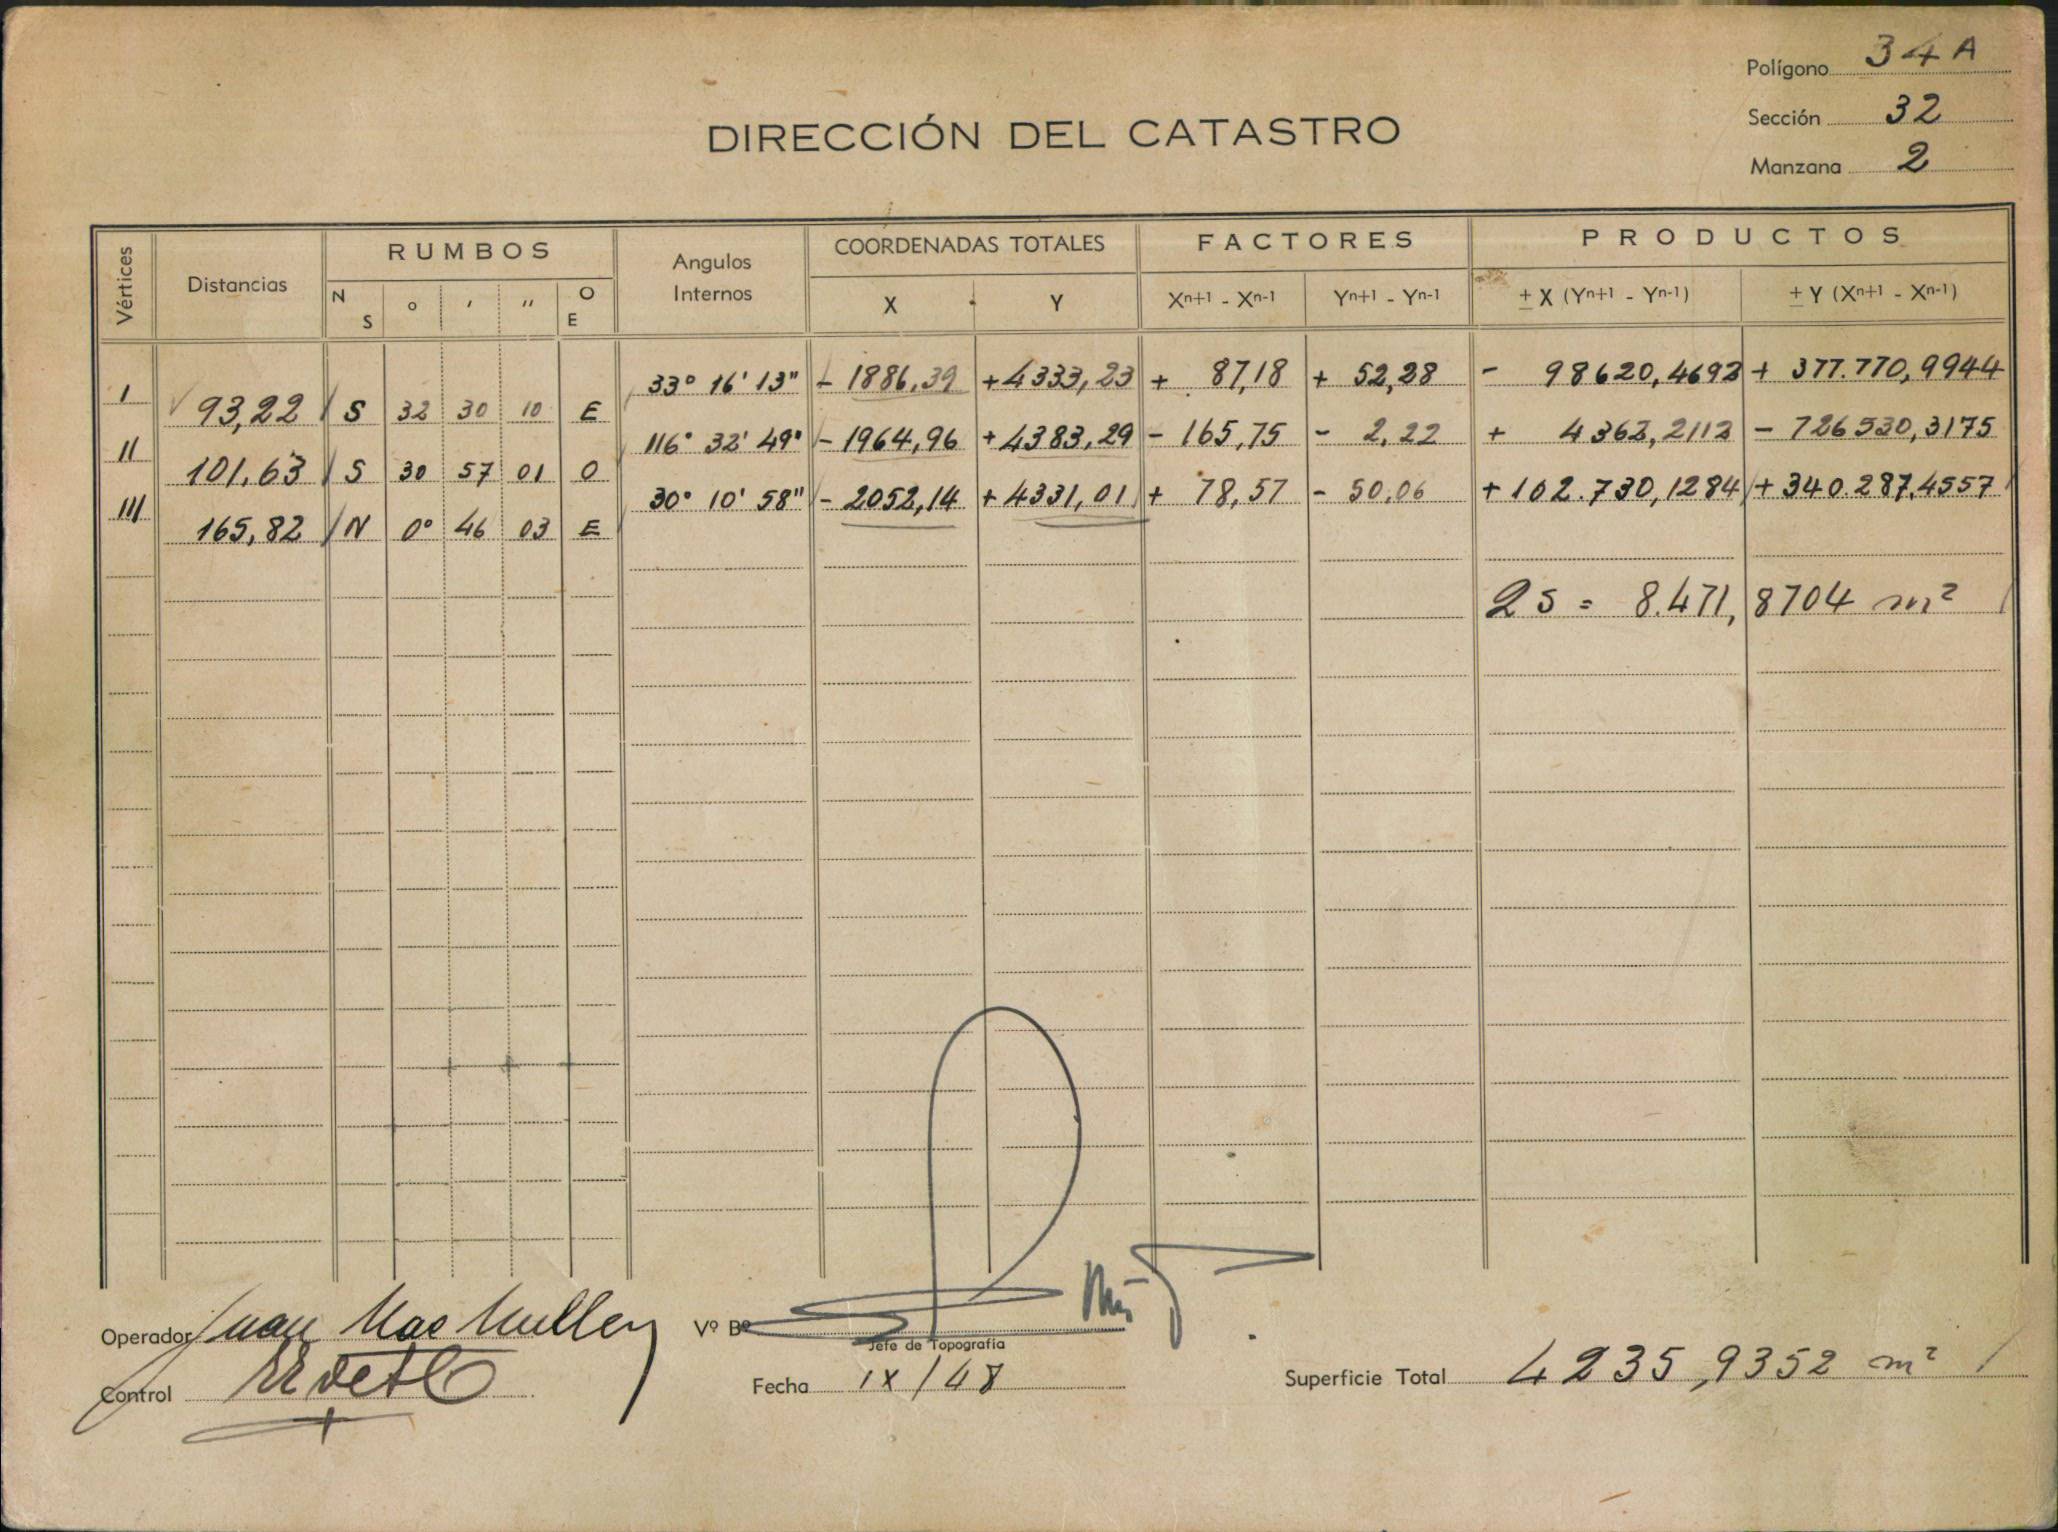 Polígono 34 A
Sección 32
DIRECCIÓN DEL CATASTRO
Manzana 2
Vértices Distancias RUMBOS Angulos Internos COORDENADAS TOTALES FACTORES PRODUCTOS
N S ° ' " O E X Y Xn+1 - Xn-1 Yn+1 - Yn-1 ± X (Yn+1 - Yn-1) ± Y (Xn+1 - Xn-1)
I 33° 16' 13" - 1886,39 + 4333,23 + 87,18 + 52,28 - 98620,4692 + 377.770,9944
93,22 S 32 30 10 E
II 116° 32' 49" - 1964,96 + 4383,29 - 165,75 - 2,22 + 4362,2112 - 726530,3175
101,63 S 30 57 01 O
III 30° 10' 58" - 2052,14 + 4331,01 + 78,57 - 50,06 + 102.730,1284 + 340.287,4557
165,82 N 0° 46 03 E
2 S = 8.471,8704 m²
Operador Juan Mac Mullen Vº Bº
Jefe de Topografía
Control Fecha IX/48 Superficie Total 4235,9352 m²